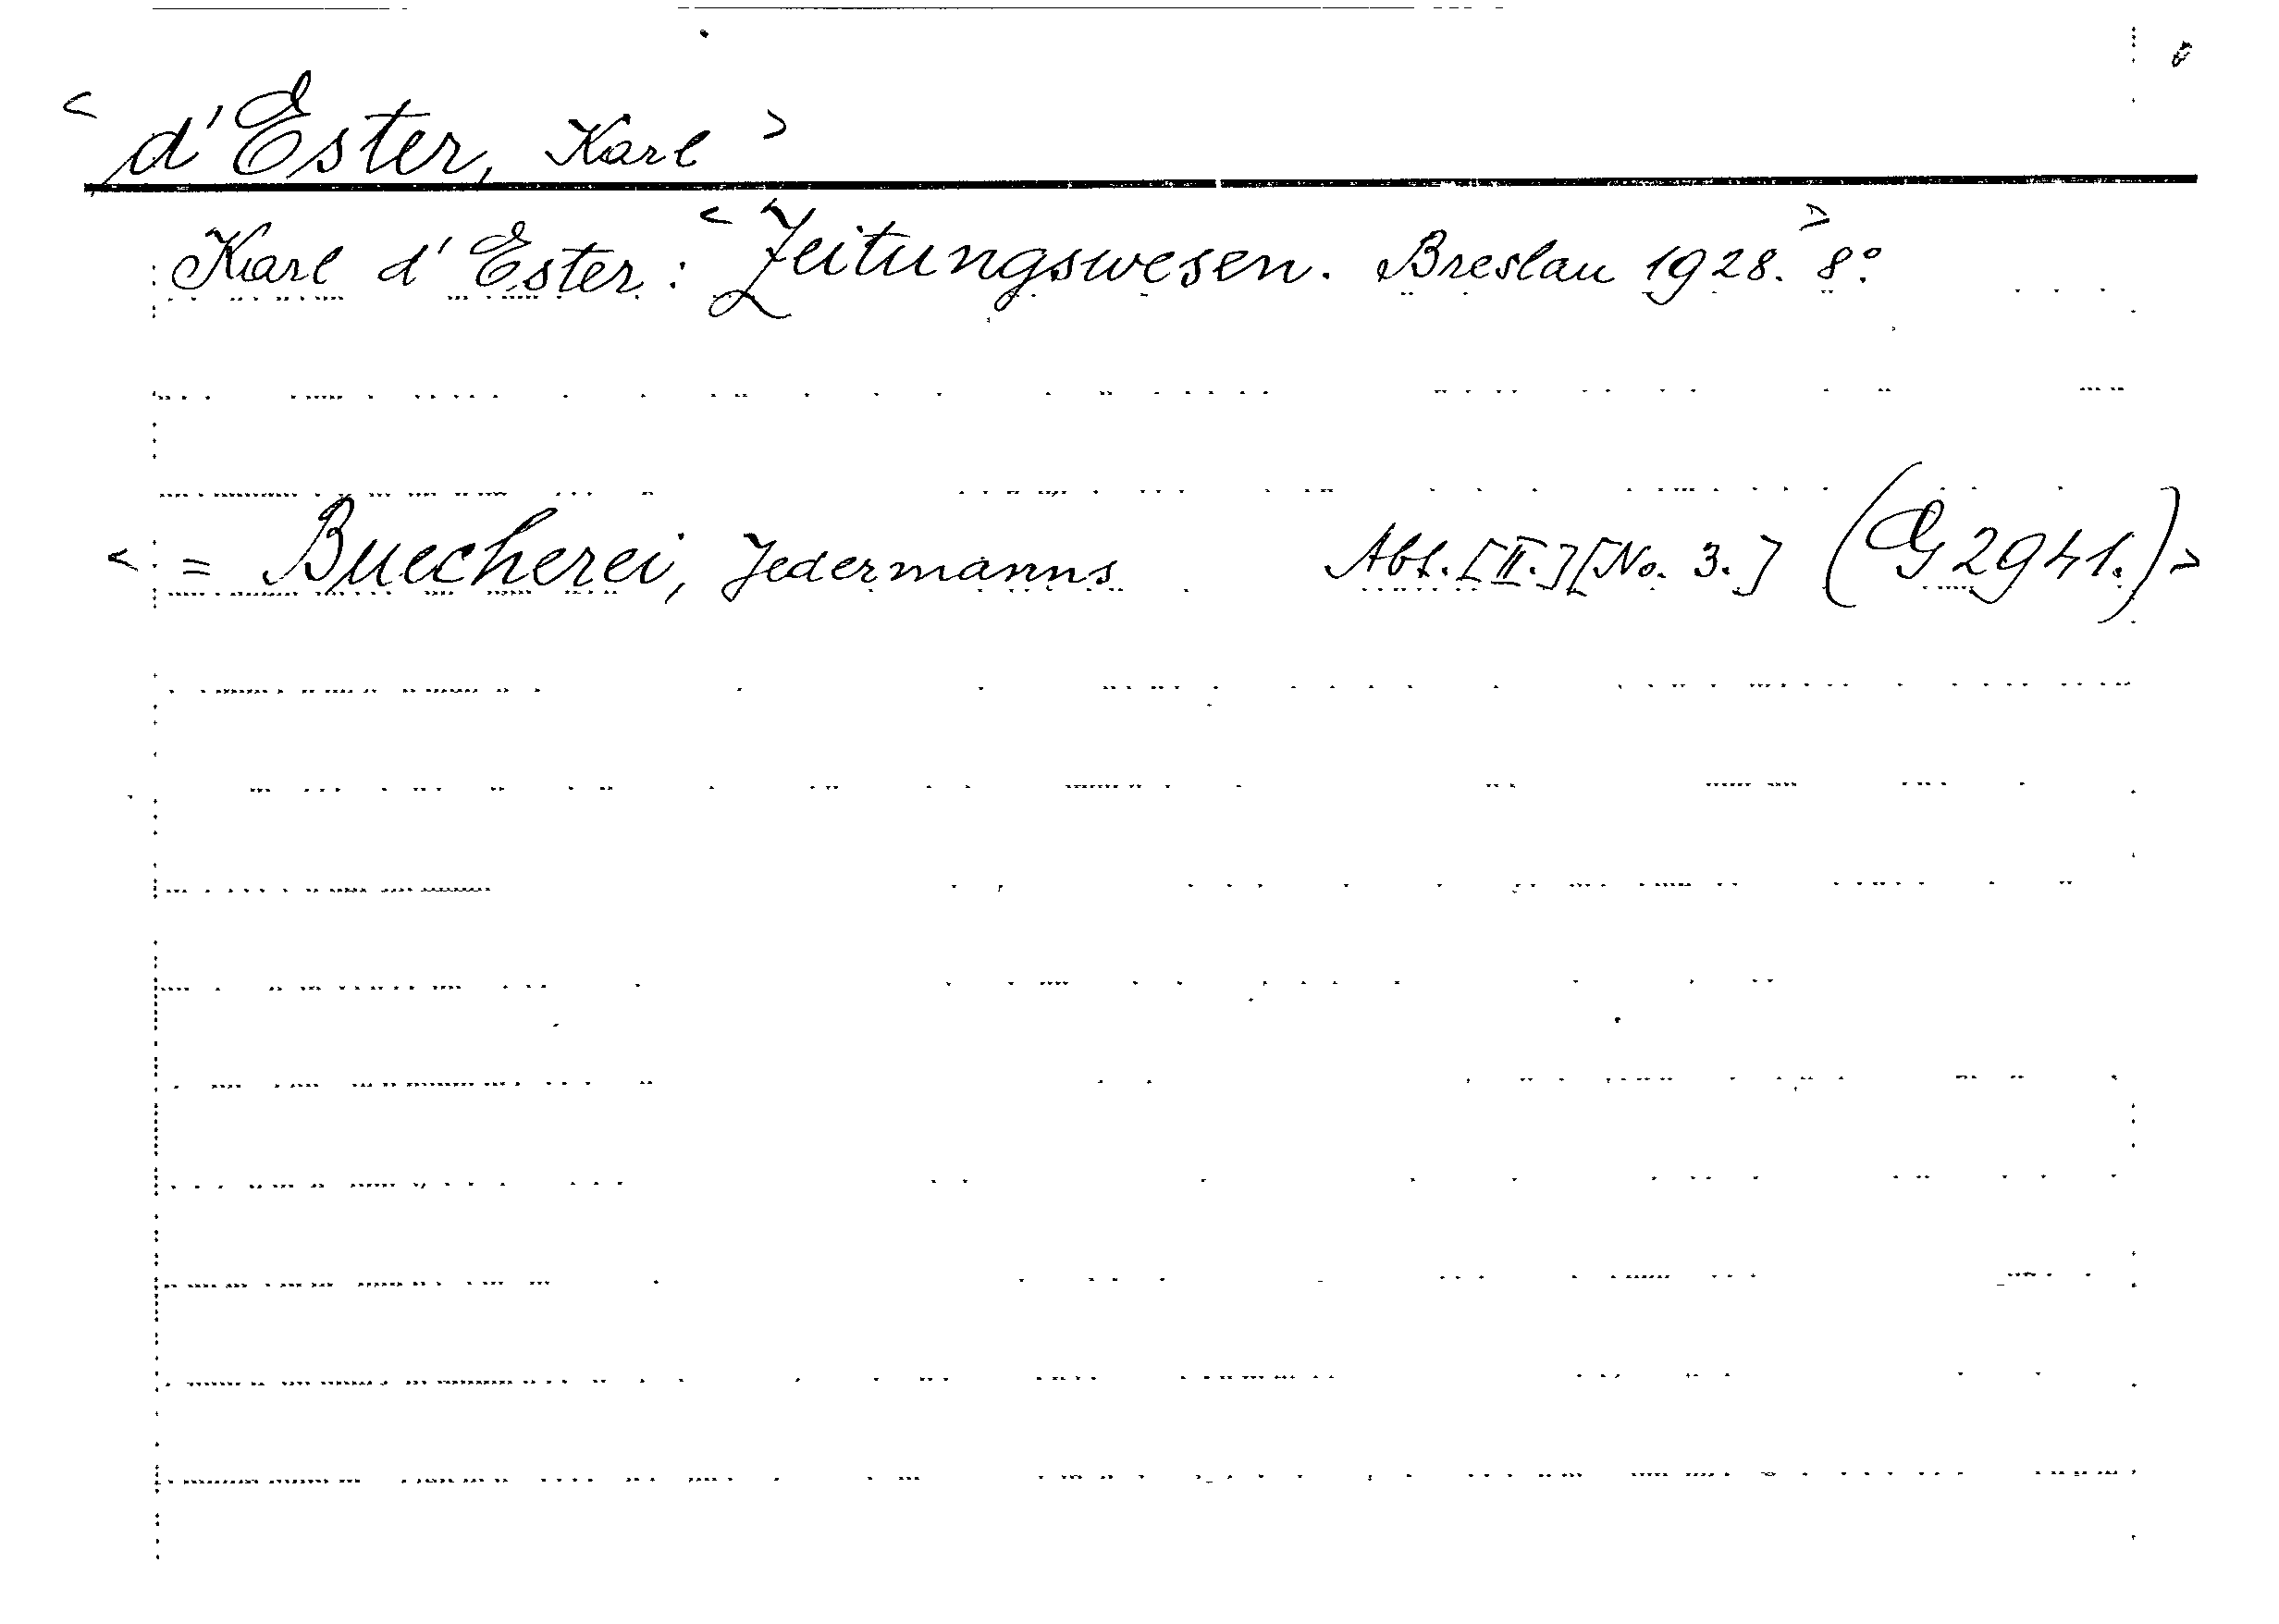 < d'Ester, Karl >
Karl d'Ester: < Zeitungswesen. Breslau 1928. > 8°.
< = Buecherei, Jedermanns Abt. [II.] [No. 3.] (G 2941.) >